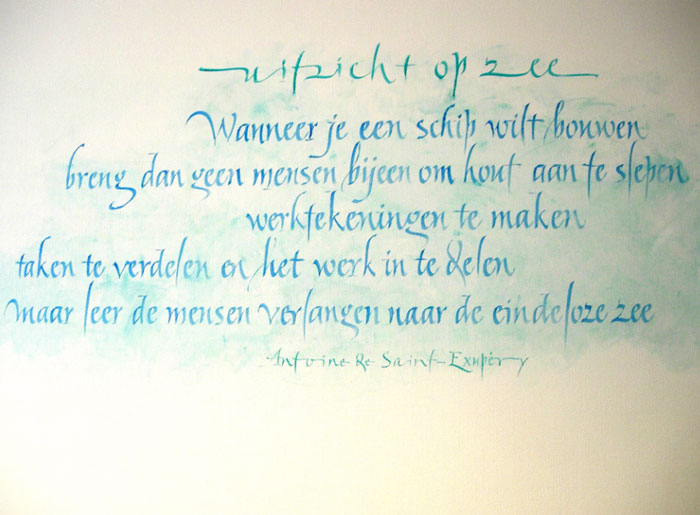 uitzicht op zee
Wanneer je een schip wilt bouwen
breng dan geen mensen bijeen om hout aan te slepen
werktekeningen te maken
taken te verdelen en het werk in te delen
maar leer de mensen verlangen naar de eindeloze zee
Antoine de Saint-Exupéry